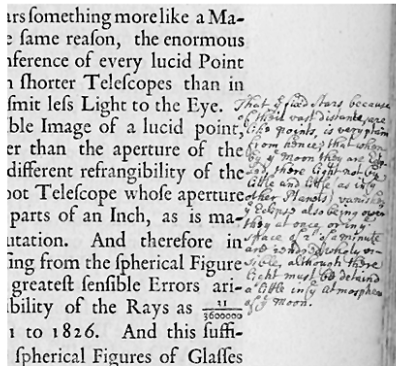 rs something more like a Ma-
e ſame reaſon, the enormous
nference of every lucid Point
n ſhorter Teleſcopes than in
ſmit leſs Light to the Eye.
ble Image of a lucid point,
er than the aperture of the
different refrangibility of the
oot Teleſcope whoſe aperture
parts of an Inch, as is ma-
utation. And therefore in
ſing from the ſpherical Figure
greateſt ſenſible Errors ari-
bility of the Rays as 31/3600000
1 to 1826. And this ſuffi-
ſpherical Figures of Glaſſes
That yͤ fixed Stars because
of their vast distance, are
like points, is very plain
from hence; that when
by yͤ Moon they are
their light not by
little and little (as in yͤ
other Planets) vanishes;
yͤ Eclipse also being over
they at once or in yͤ
space of 2ͩ of a minute
are conspicuously vi-
sible, although their
light must be detaind
a little in yͤ atmosphere
of yͤ Moon.